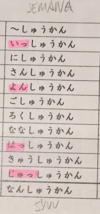 SEMANA
～しゅうかん
いっしゅうかん
にしゅうかん
さんしゅうかん
よんしゅうかん
ごしゅうかん
ろくしゅうかん
ななしゅうかん
はっしゅうかん
きゅうしゅうかん
じゅっしゅうかん
なんしゅうかん